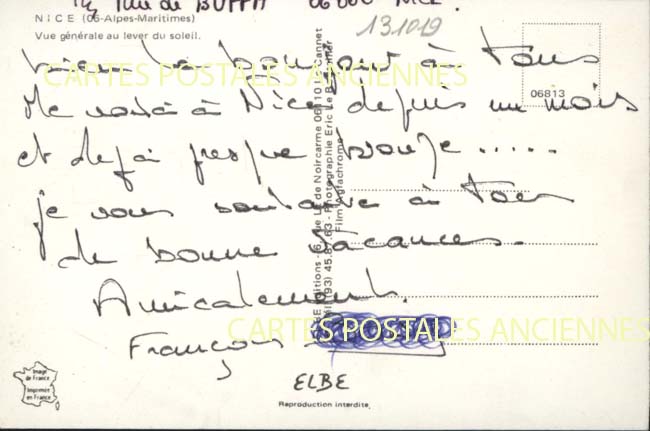 Rue de BUFFA 06000 NICE.
NICE (06-Alpes-Maritimes)
131019
Vue générale au lever du soleil.
bonjour à tous
CARTES POSTALES ANCIENNES
Me voilà à Nice depuis un mois
06813
et déjà presque bronzé.....
je vous souhaite à tous
de bonne vacances.
Amicalement.
CARTES POSTALES ANCIENNES
François
ELBE
Image
de France
Imprimée
en France
Reproduction interdite
Editions - 6, rue de Noircarme 06110 Le Cannet
(93) 45. .63 - Photographie Eric
Film Agfachrome